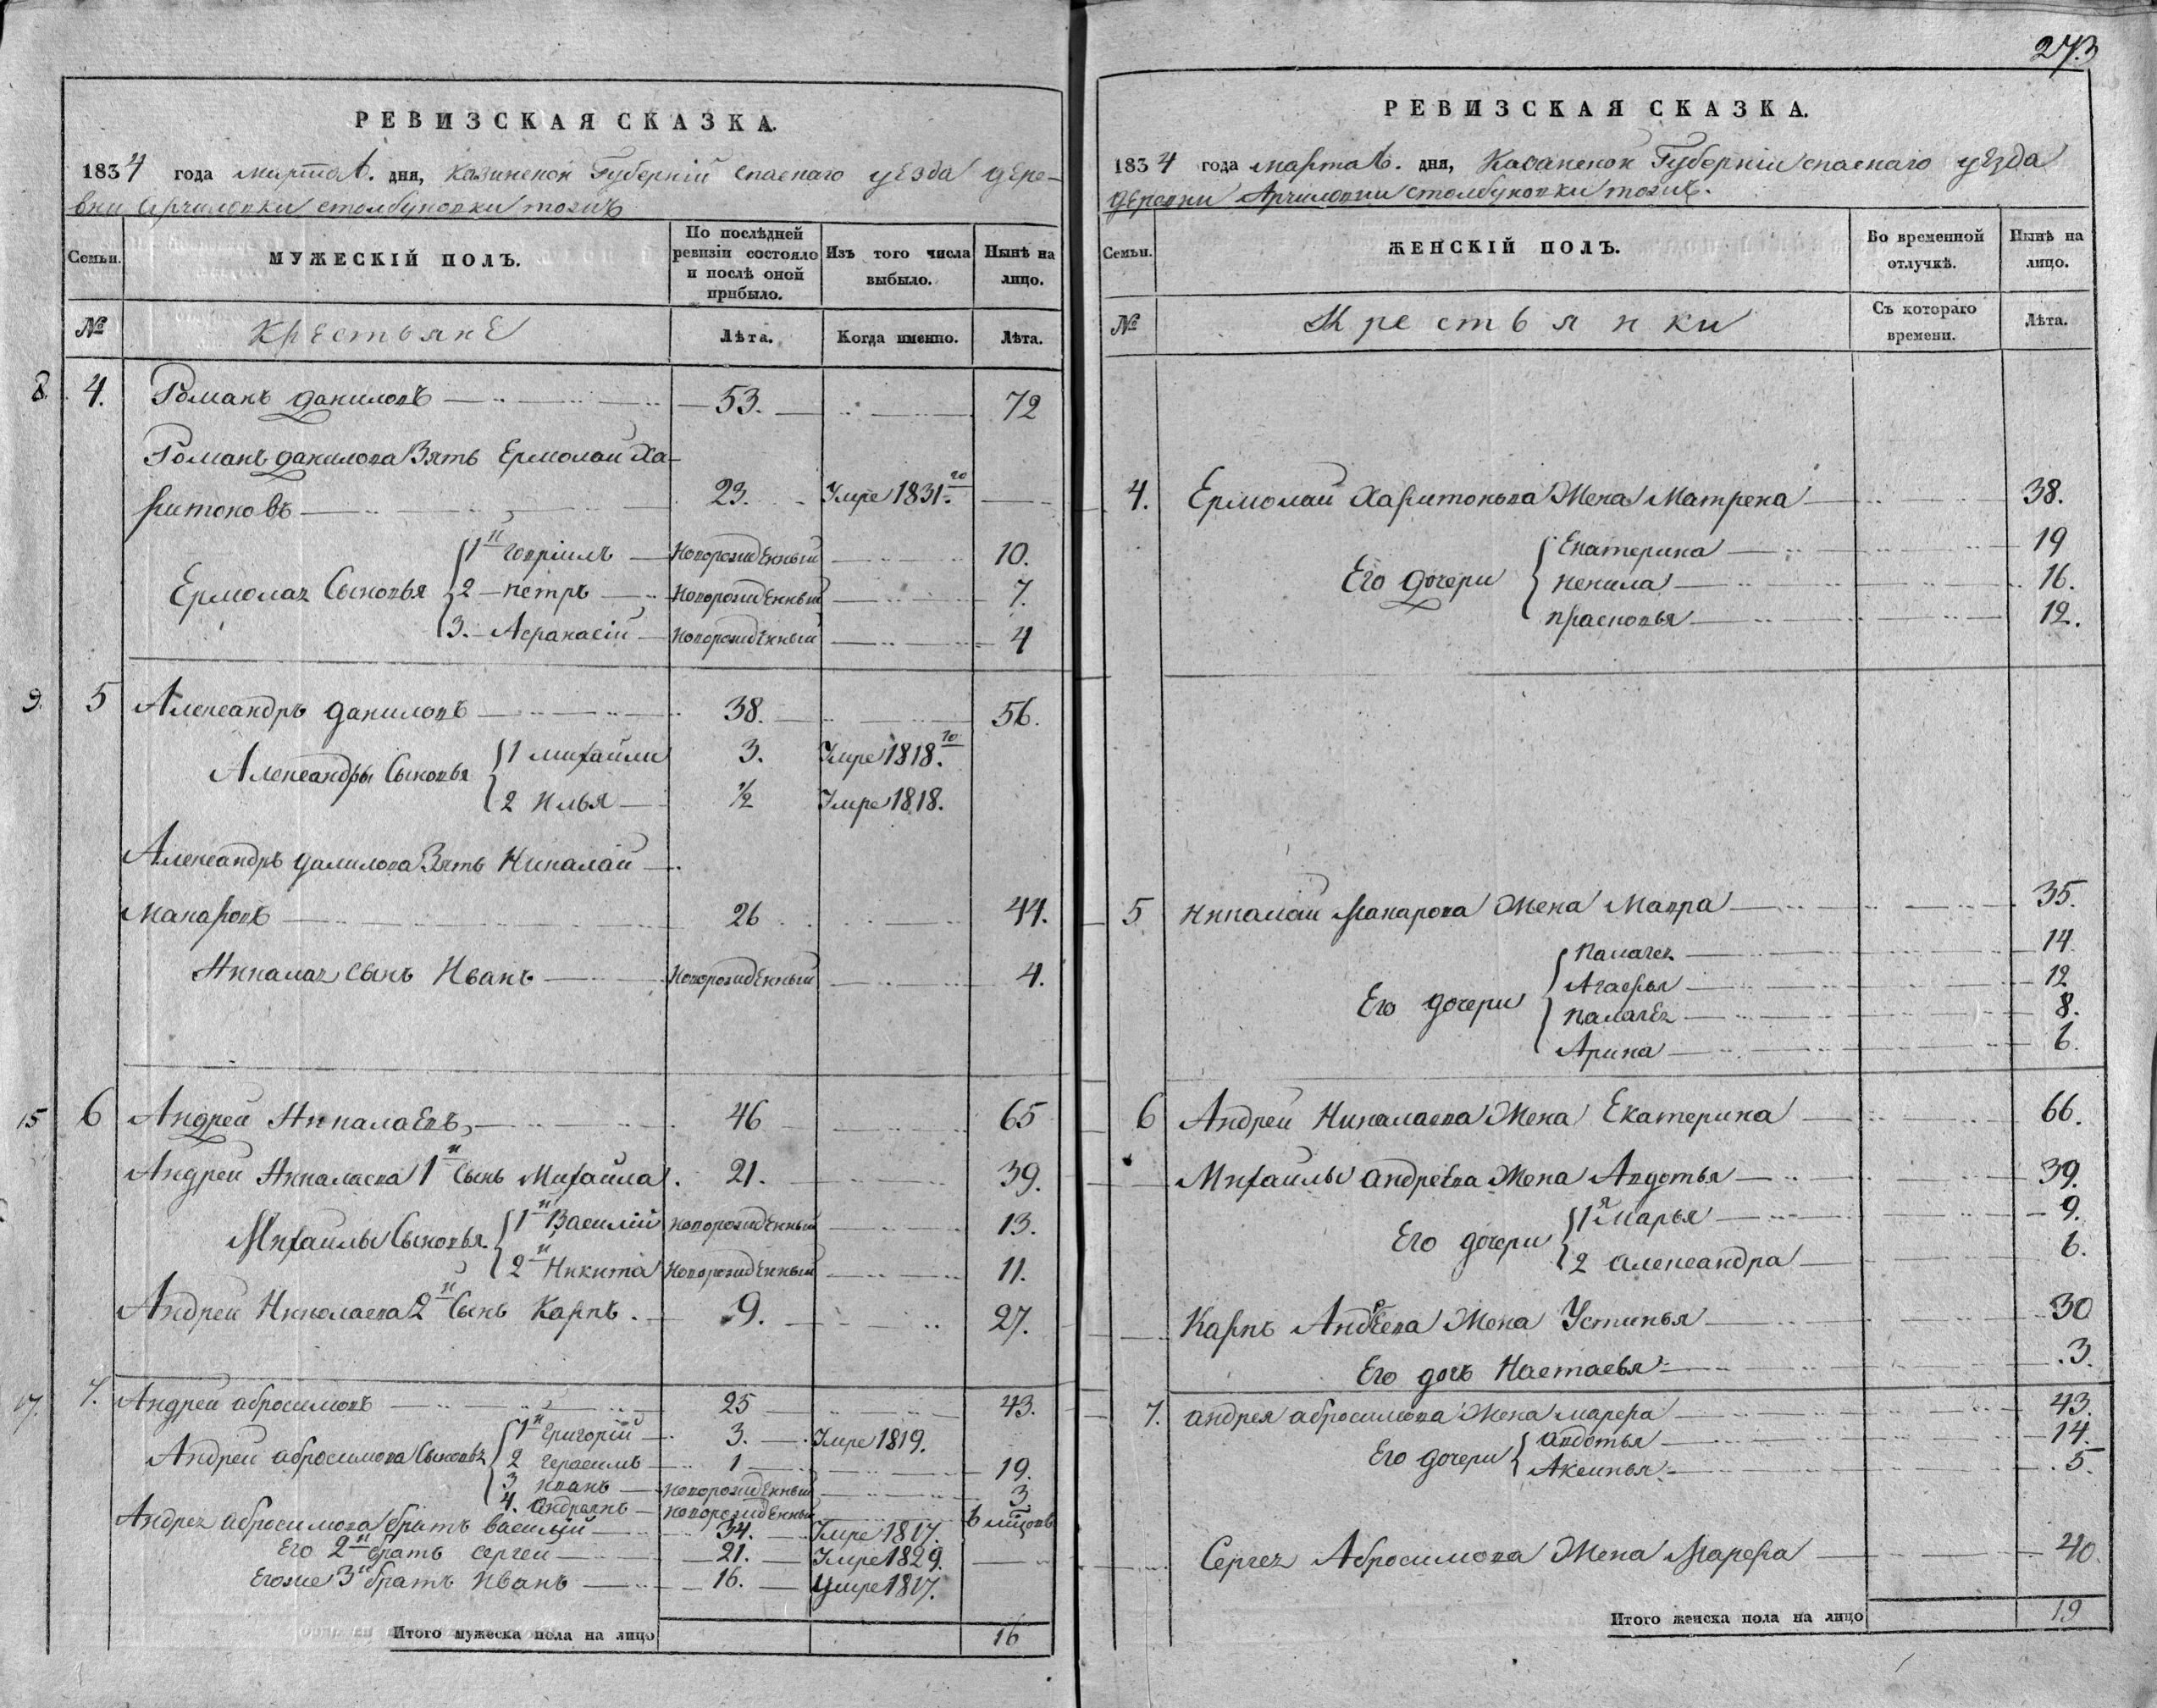 273
РЕВИЗСКАЯ СКАЗКА.
1834 года марта дня, Казанской Губерніи спаскаго уезда дере-
вни Арчиловки столбуковки тожъ
Семьи. МУЖЕСКІЙ ПОЛЪ. По послѣдней ревизіи состояло и послѣ оной прибыло. Изъ того числа выбыло. Нынѣ на лицо.
№ Крестьяне Лѣта. Когда именно. Лѣта.
8. 4. Романъ даниловъ 53. 72
Романъ данилова Зять Ермолаи Ха-
ритоновъ 23. Умре 1831.го
1й Говріилъ новорожденный 10.
Ермолая Сыновья 2 петръ новорожденный 7.
3. Афанасій новорожденный 4
9. 5 Александръ даниловъ 38. 56.
1 михайли 3. Умре 1818.го
Александры Сыновья
2 Илья 1/2 Умре 1818.
Александръ данилова Зять Никалаи
Макаровъ 26 44.
Никалая сынъ Иванъ новорожденный 4.
15 6 Андреи Никалаевъ 46 65
Андреи Никалаева 1й Сынъ Михаила. 21. 39.
1й Василій новорожденный 13.
Михаилы Сыновья
2й Никита новорожденный 11.
Андреи Николаева 2й Сынъ Карпъ. 9. 27.
17. 7. Андреи абросимовъ 25 43.
1й Григорій 3. Умре 1819.
Андреи абросимова Сыновья 2 герасимъ 1 19.
3 иванъ новорожденный 3
4. андреянъ новорожденный 6 мцовъ
Андрея абросимова братъ василій 34. Умре 1817.
Его 2й братъ сергеи 21. Умре 1829.
Егоже 3й братъ Иванъ 16. Умре 1817.
Итого мужеска пола на лицо 16
РЕВИЗСКАЯ СКАЗКА.
1834 года марта дня, Казаненои Губерніи спаскаго уезда
деревни Арчиловки столбуковки тожъ.
Семьи. ЖЕНСКІЙ ПОЛЪ. Во временной отлучкѣ. Нынѣ на лицо.
№ Крестьянки Съ котораго времени. Лѣта.
4. Ермолаи Харитонова Жена Матрена 38.
Екатерина 19
Его дочери ненила 16.
прасковья 12.
5 никалаи Макарова Жена Мавра 35.
Палагея 14
Агафья 12
Его дочери
палагея 8.
Арина 6.
6 Андреи Никалаева Жена Екатерина 66.
Михаилы андреева Жена Авдотья 39.
1я Марья 9.
Его дочери
2 александра 6.
Карпъ Андрева Жена Устинья 30
Его дочь Настасья 3.
7. андрея абросимова Жена марфа 43.
авдотья 14.
Его дочери
Аксинья 5.
Сергея Абросимова Жена Марфа 40.
Итого женска пола на лицо 19